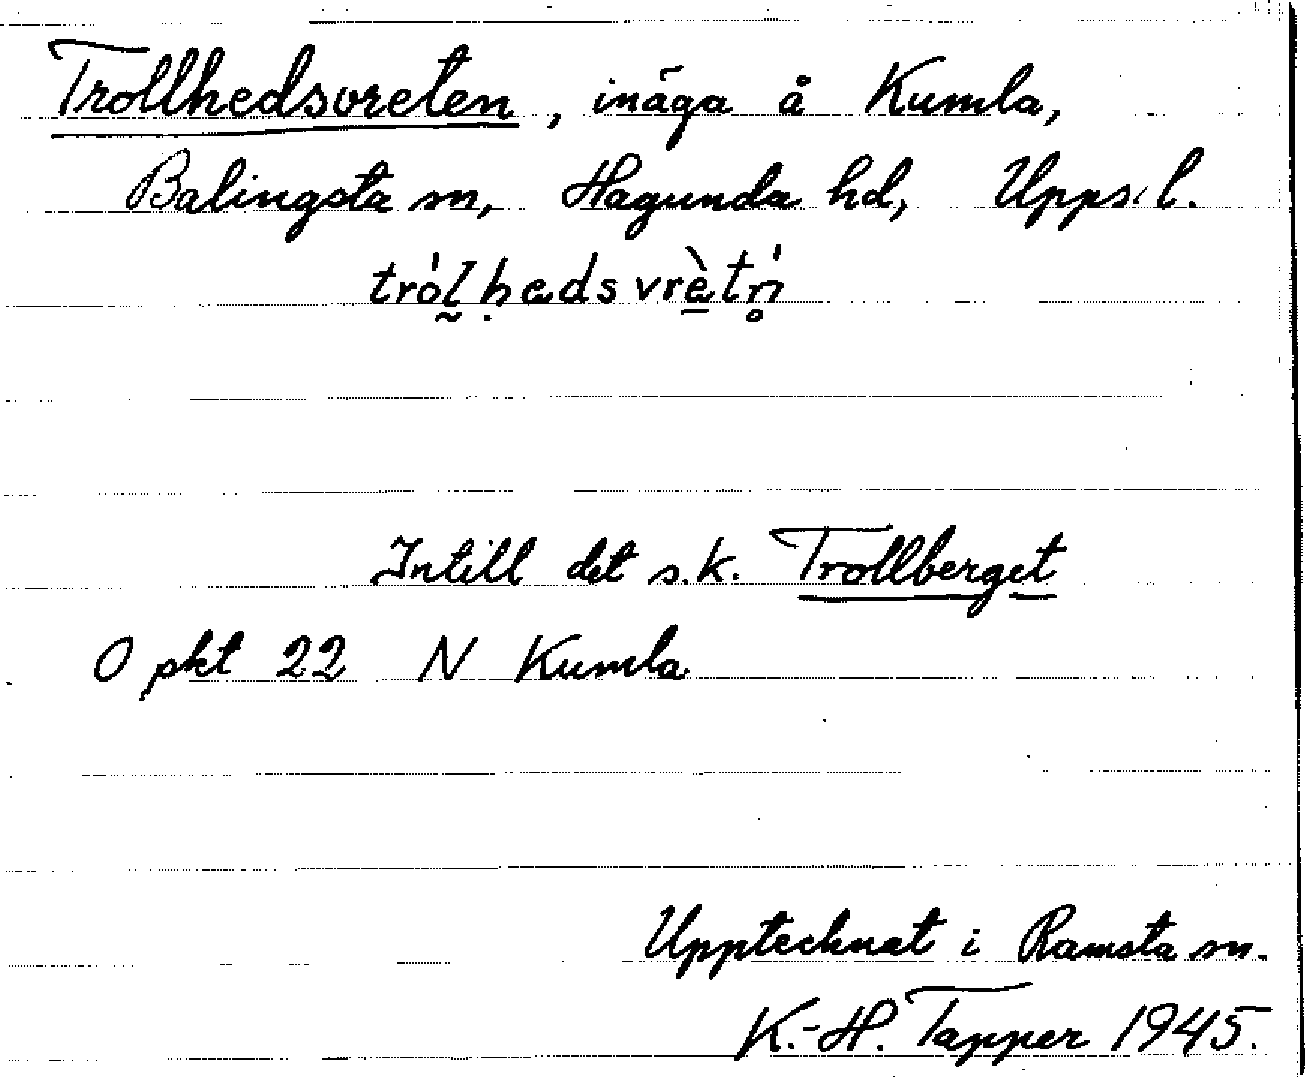 Trollhedsvreten, inäga å Kumla,
Balingsta sn, Hagunda hd, Upps. l.
tról̰ḥedsvrè̱tǹ̥
Intill det s.k. Trollberget
O pkt 22 N Kumla
Upptecknat i Ramsta sn.
K.-H. Tapper 1945.